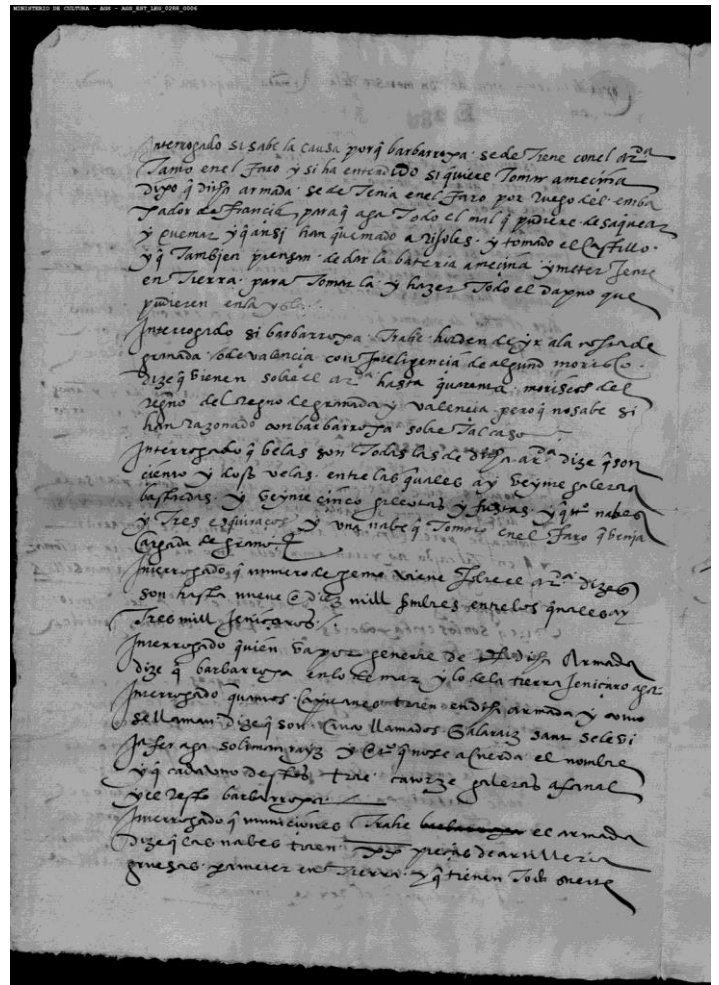 MINISTERIO DE CULTURA - AGS - AGS_EST_LEG_0288_0006
Interrogado si sabe la causa porq̃ barbarroxa se detiene con el ar.da
Tanto en el Faro y si ha entendido si quiere Tomar a meçina
Dixo q̃ dicha armada se detenia en el Faro por Ruego del emba
xador de Francia, para q̃ aga Todo el mal q̃ pudiere de saquear
y quemar y q̃ ansi han quemado a rijoles y tomado el Castillo.
y q̃ Tambien piensan de dar la bateria a meçina y meter Jente
en Tierra para Tomarla y hazer Todo el dapno que
pudieren en la ysla
Interrogado si barbarroxa Trahe horden de yr a la costa de
granada o de valencia con Inteligencia de algund morisco.
dize q̃ vienen sobre el ar.da hasta quarenta moriscos del
regno de granada y valencia pero q̃ no sabe si
han razonado con barbarroxa sobre Tal caso
Interrogado q̃ belas son Todas las de dicha ar.da dize q̃ son
ciento y dos velas entre las quales ay veynte galeras
bastardas y veynte cinco galeotas y fustas y q.tro nabes
y Tres esquiraços y una nabe q̃ Tomaron en el Faro q̃ benia
Cargada de grano
Interrogado q̃ numero de gente viene sobre el ar.da dize q̃
son hasta nueve o diez mill hombres entre los quales ay
Tres mill Jeniçaros
Interrogado quien va por general de dicha Armada
dize q̃ barbarroxa en lo de mar y lo de la tierra Jeniçaro aga
Interrogado quantos Capitanes traen en dicha armada y como
se llaman Dize q̃ son llamados Salaraiz
Jafer aga soliman rayz y q̃ no se acuerda el nombre
y q̃ cada uno destos trae catorze galeras a fanal
y el resto barbarroxa
Interrogado q̃ municiones Trahe barbarroxa el armada
Dize q̃ las nabes traen pieças de artilleria
gruesas para meter en Tierra y q̃ tienen